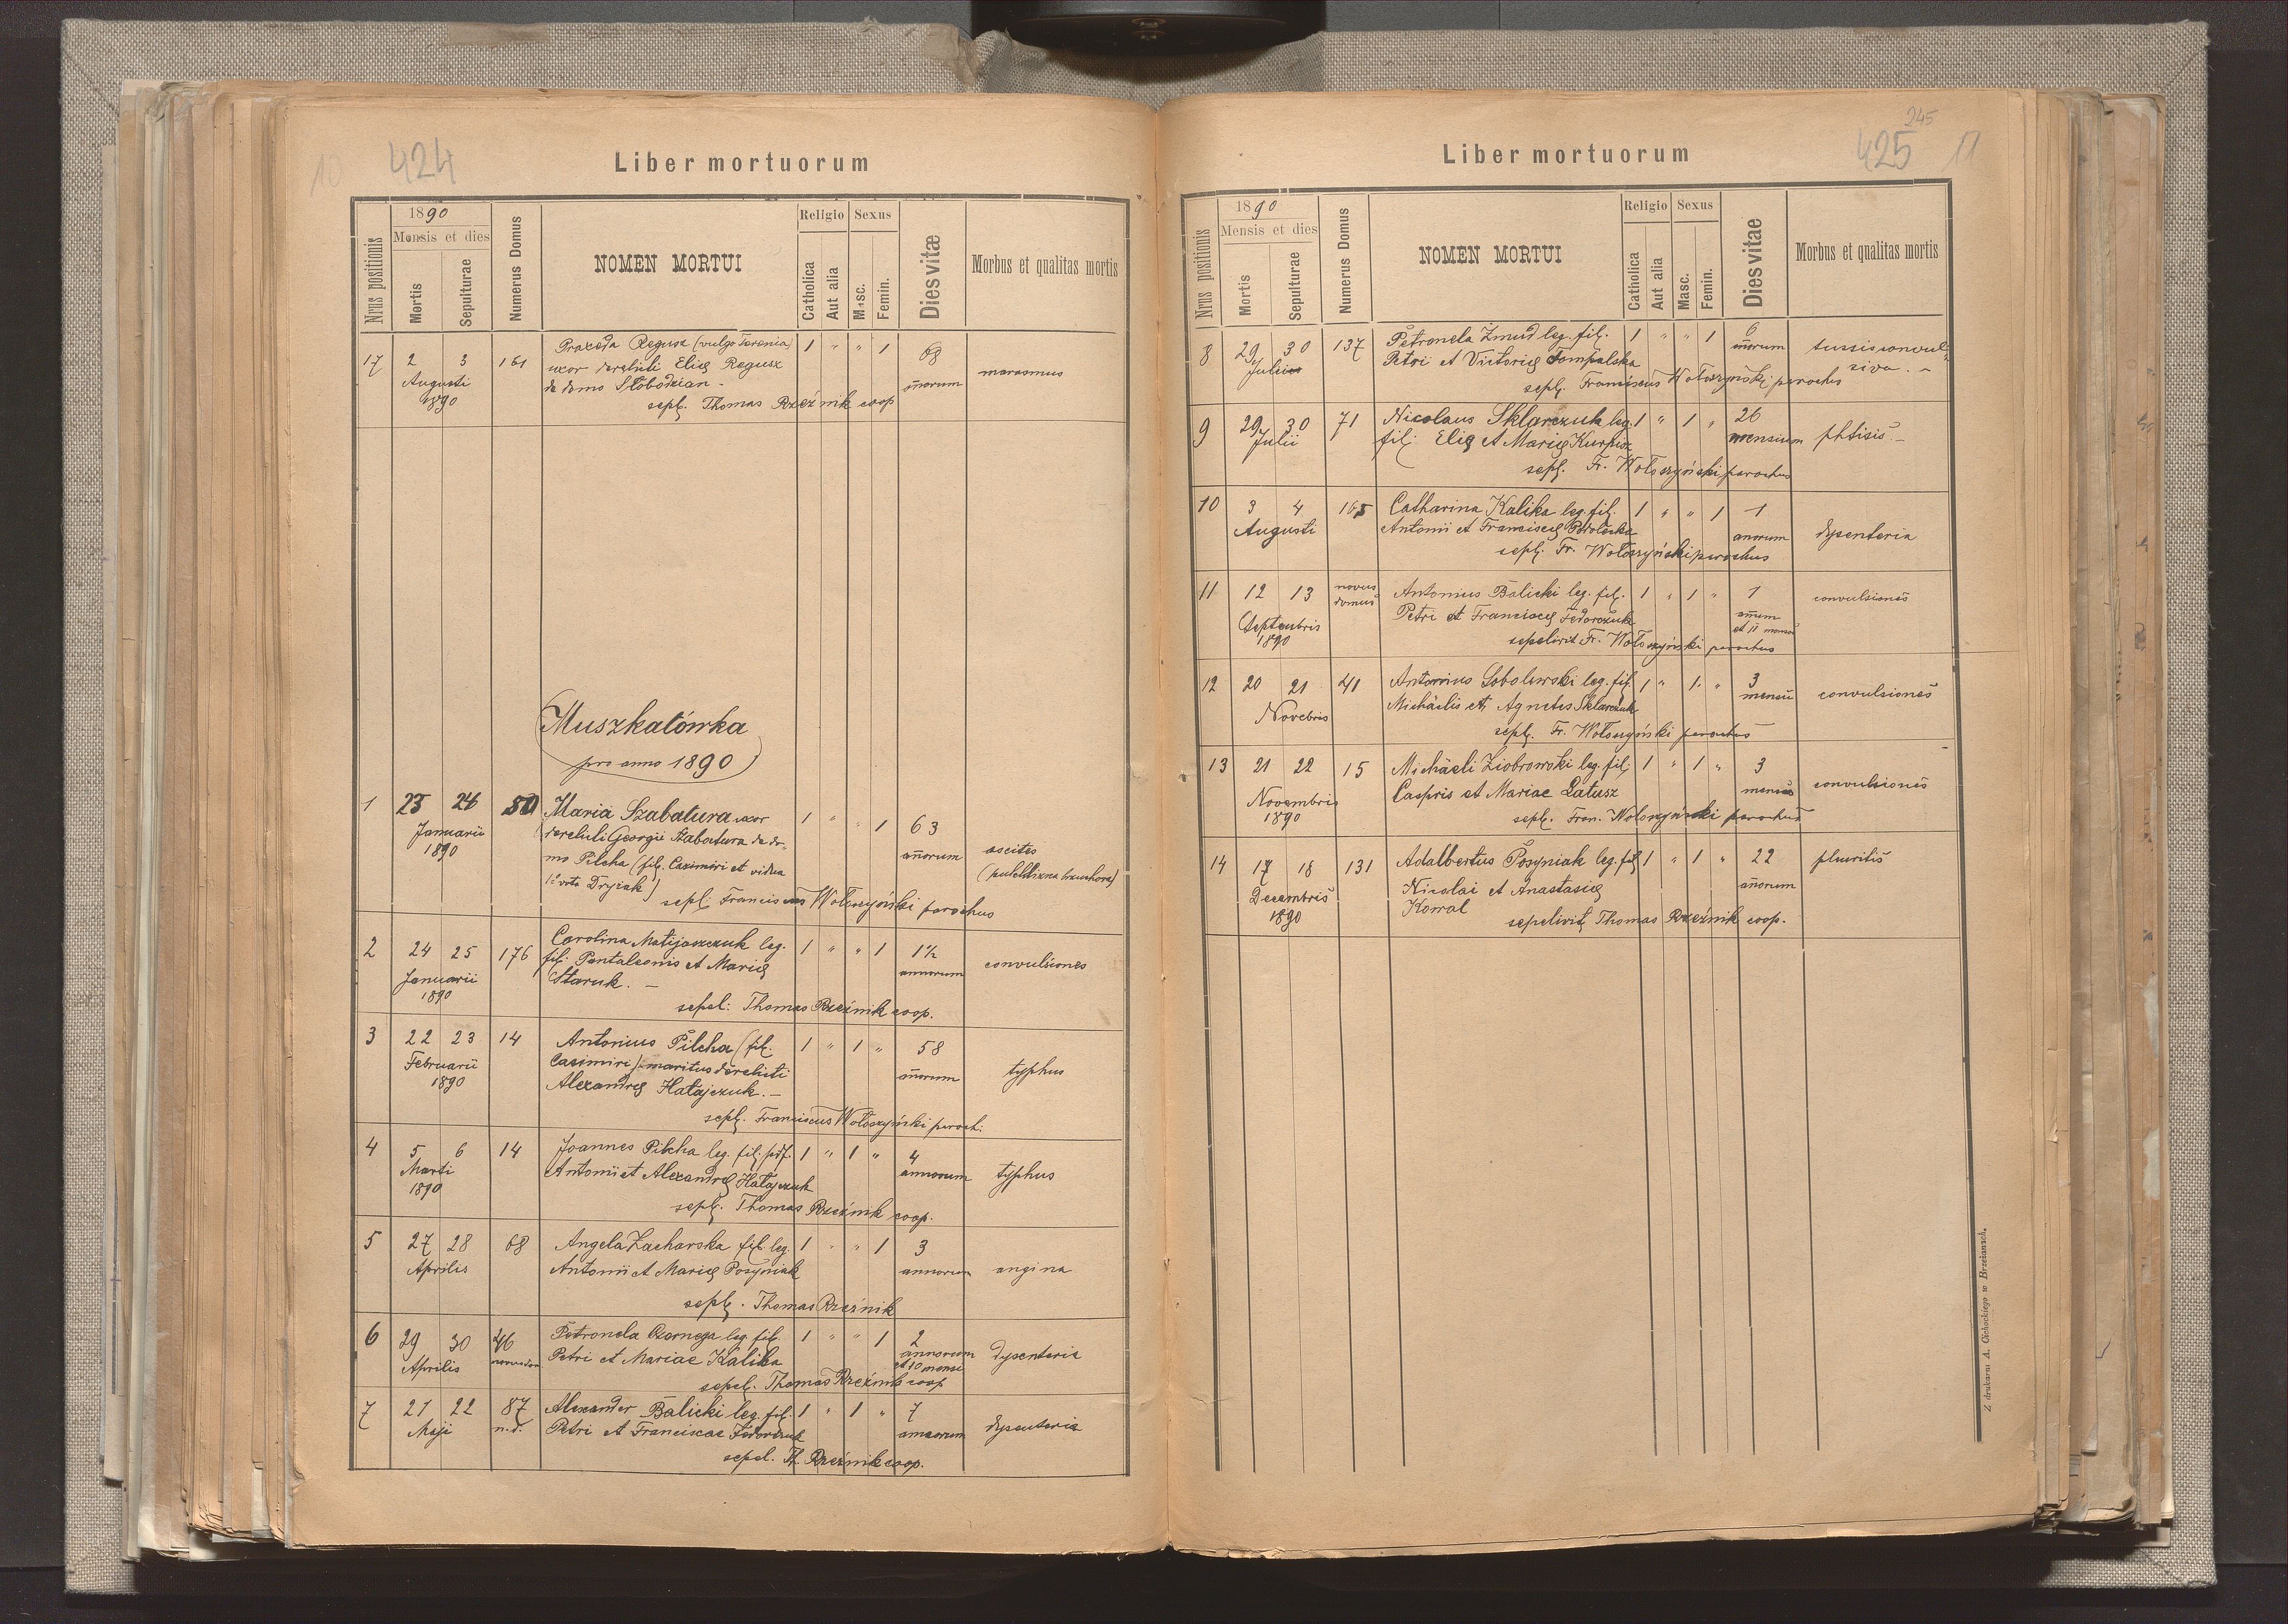 10 424
Liber mortuorum
Nrus positionis
1890
Mensis et dies
Mortis
Sepulturae
Numerus Domus
NOMEN MORTUI
Religio
Catholica
Aut alia
Sexus
Masc.
Femin.
Dies vitæ
Morbus et qualitas mortis
17 2 3 161 Praxeda Regusz (vulgo Terenia) 1 " " 1 68 marasmus
Augusti uxor derelicti Elię Regusz añorum
1890 de domo Słobodzian -
sepl. Thomas Rzeźnik coop
Muszkatówka
pro anno 1890
1 23 24 50 Maria Szabatura uxor 1 " " 1 63
Januarii derelicti Georgii Szabatura de do- añorum ascites
1890 mo Pilcha (fil. Casimiri et vidua
1º voto Dryzak)
sepl. Franciscus Wołoszyński parochus
2 24 25 176 Carolina Matijaszczuk leg. 1 " " 1 1½ convulsiones
Januarii fil. Pantaleonis et Marię annorum
1890 Staruk. -
sepel: Thomas Rzeźnik coop.
3 22 23 14 Antonius Pilcha (fil. 1 " 1 " 58 typhus
Februarii Casimiri) maritus derelicti añorum
1890 Alexandrę Hałajczuk. -
sepl. Franciscus Wołoszyński paroch:
4 5 6 14 Joannes Pilcha leg. fil. pdf. 1 " 1 " 4 typhus
Marti Antonii et Alexandrę Hałajczuk annorum
1890
sepl. Thomas Rzeźnik coop.
5 27 28 68 Angela Zacharska fil. leg. 1 " " 1 3 angina
Aprilis Antonii et Marię Posyniak annorum
sepl. Thomas Rzeźnik
6 29 30 46 Petronela Czornega leg. fil. 1 " " 1 2 dysenteria
Aprilis Petri et Mariae Kalika annorum
et 10 mens
sepel. Thomas Rzeźnik coop
7 21 22 87 Alexander Balicki leg. fil. 1 " 1 " 7 dysenteria
Maji n. d. Petri et Franciscae Fedorczuk annorum
sepel. Th. Rzeźnik coop.
245
425 11
Liber mortuorum
Nrus positionis
1890
Mensis et dies
Mortis
Sepulturae
Numerus Domus
NOMEN MORTUI
Religio
Catholica
Aut alia
Sexus
Masc.
Femin.
Dies vitae
Morbus et qualitas mortis
8 29 30 137 Petronela Zmud leg. fil. 1 " " 1 6 tussis convul-
Julii Petri et Victorię Tompalska añorum siva. -
sepl. Franciscus Wołoszyński parochus
9 29 30 71 Nicolaus Sklarczuk leg. 1 " 1 " 26 phtisis -
Julii fil. Elię et Marię Kurpisz mensium
sepl. Fr. Wołoszyński parochus
10 3 4 165 Catharina Kalika leg. fil. 1 " " 1 1 dysenteria
Augusti Antonii et Franciscę anorum
sepl. Fr. Wołoszyński parochus
11 12 13 novus domus Antonius Balicki leg. fil. 1 " 1 " 1 convulsiones
Septembris Petri et Franciscę Fedorczuk añum
1890 et 11 mens
sepelivit Fr. Wołoszyński parochus
12 20 21 41 Antonius Sobolewski leg. fil. 1 " 1 " 3 convulsiones
Novebris Michaelis et Agnetis Sklarczuk mensiu
sepl. Fr. Wołoszyński parochus
13 21 22 15 Michaeli Ziobrowski leg. fil. 1 " 1 " 3 convulsiones
Novembris Caspris et Mariae Łatusz menses
1890
sepl. Fran. Wołoszyński parochus
14 17 18 131 Adalbertus Posyniak leg. fil. 1 " 1 " 22 pluritis
Decembris Nicolai et Anastasię añorum
1890 Kowal
sepelivit Thomas Rzeźnik coop.
Z drukarni A. Cichockiego w Brzeżanach.